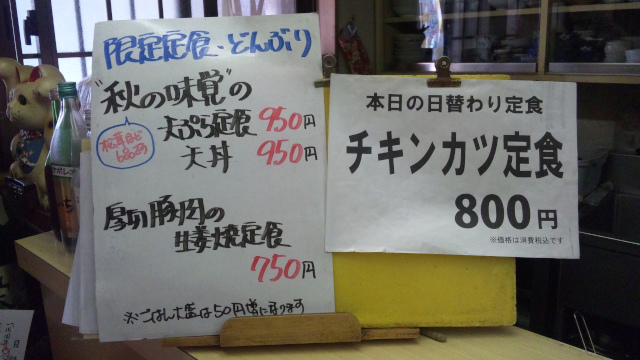 限定定食・どんぶり
"秋の味覚"の
天ぷら定食 950円
天丼 950円
松茸など
厚切豚肉の
生姜焼定食
750円
※ごはん大盛は50円増になります
本日の日替わり定食
チキンカツ定食
800円
※価格は消費税込です